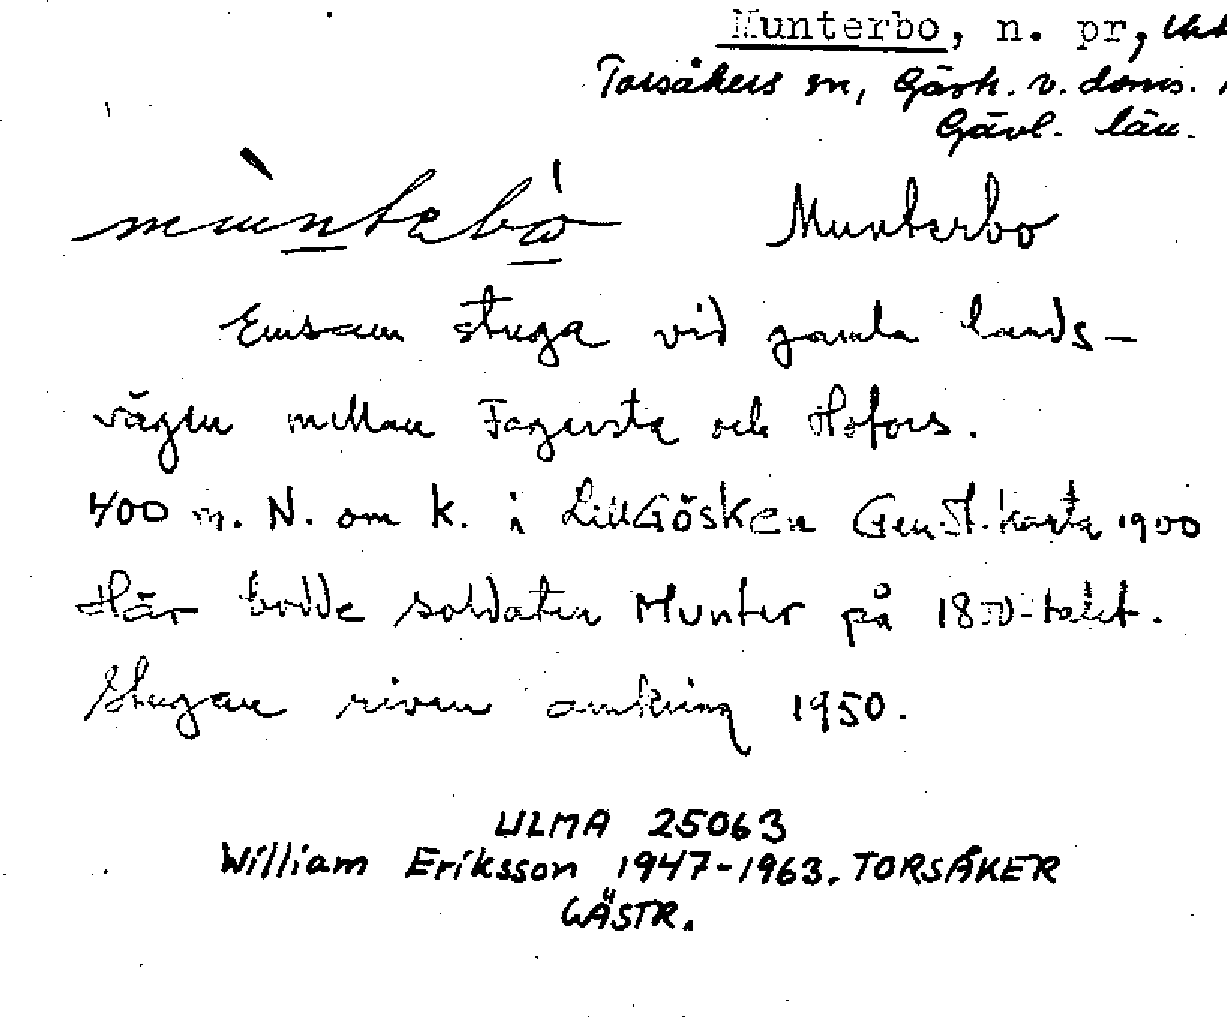 Munterbo, n. pr,
Torsåkers sn, Gästr. v. doms.
Gävl. län.
mùntebó Munterbo
Ensam stuga vid gamla lands-
vägen mellan Fagersta och Hofors.
400 m. N. om k. i LillGösken Gen.St.karta 1900
Här bodde soldaten Munter på 1850-talet.
Stugan riven omkring 1950.
ULMA 25063
William Eriksson 1947-1963. TORSÅKER
GÄSTR.